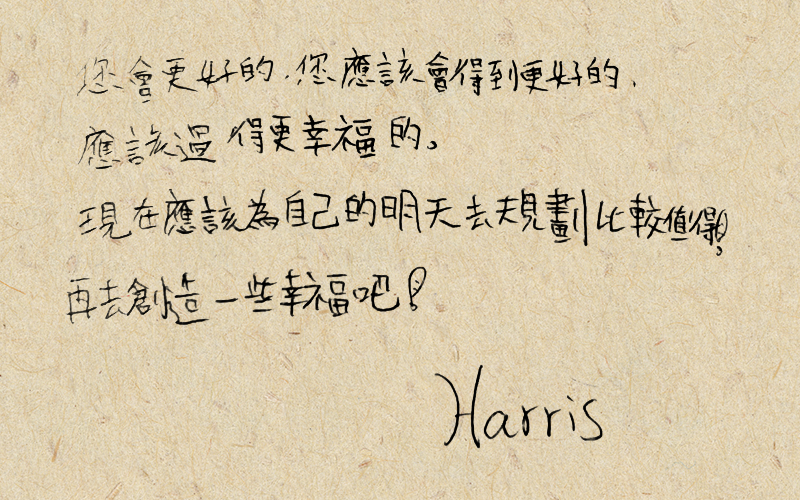 您會更好的．您應該會得到更好的．
應該過得更幸福的。
現在應該為自己的明天去規劃比較值得！
再去創造一些幸福吧！
Harris